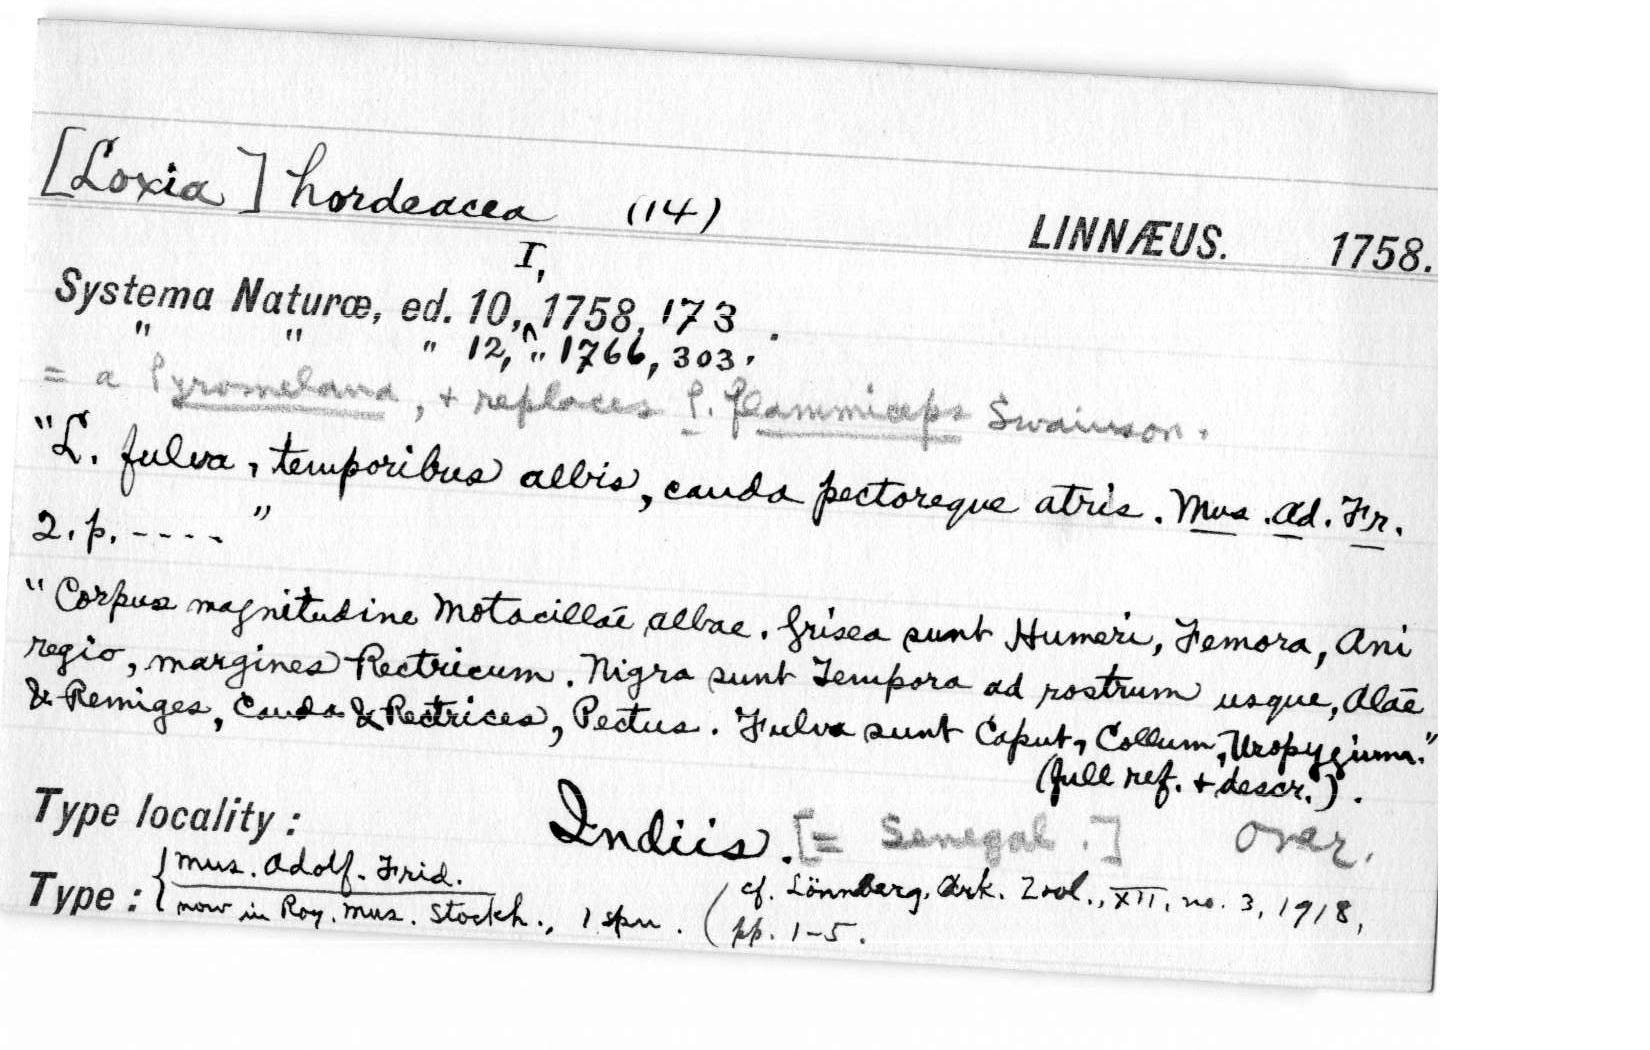 [Loxia] hordeacea (14) LINNÆUS. 1758.
I,
Systema Naturæ, ed. 10,^ 1758, 173.
" " " 12, " 1766, 303.
= a Pyromelana, + replaces P. flammiceps Swainson.
"L. fulva, temporibus albis, cauda pectoreque atris. Mus. Ad. Fr.
2. p. ---- "
"Corpus magnitudine Motacillae albae. Grisea sunt Humeri, Femora, Ani
regio, margines Rectricum. Nigra sunt Tempora ad rostrum usque, Alae
& Remiges, Cauda & Rectrices, Pectus. Fulva sunt Caput, Collum, Uropygium."
(full ref. + descr.).
Type locality: Indiis. [= Senegal.] over.
Type: { Mus. Adolf. Frid.
now in Roy. Mus. Stockh., 1 spn. (cf. Lönnberg, Ark. Zool., XII, no. 3, 1918,
pp. 1-5.